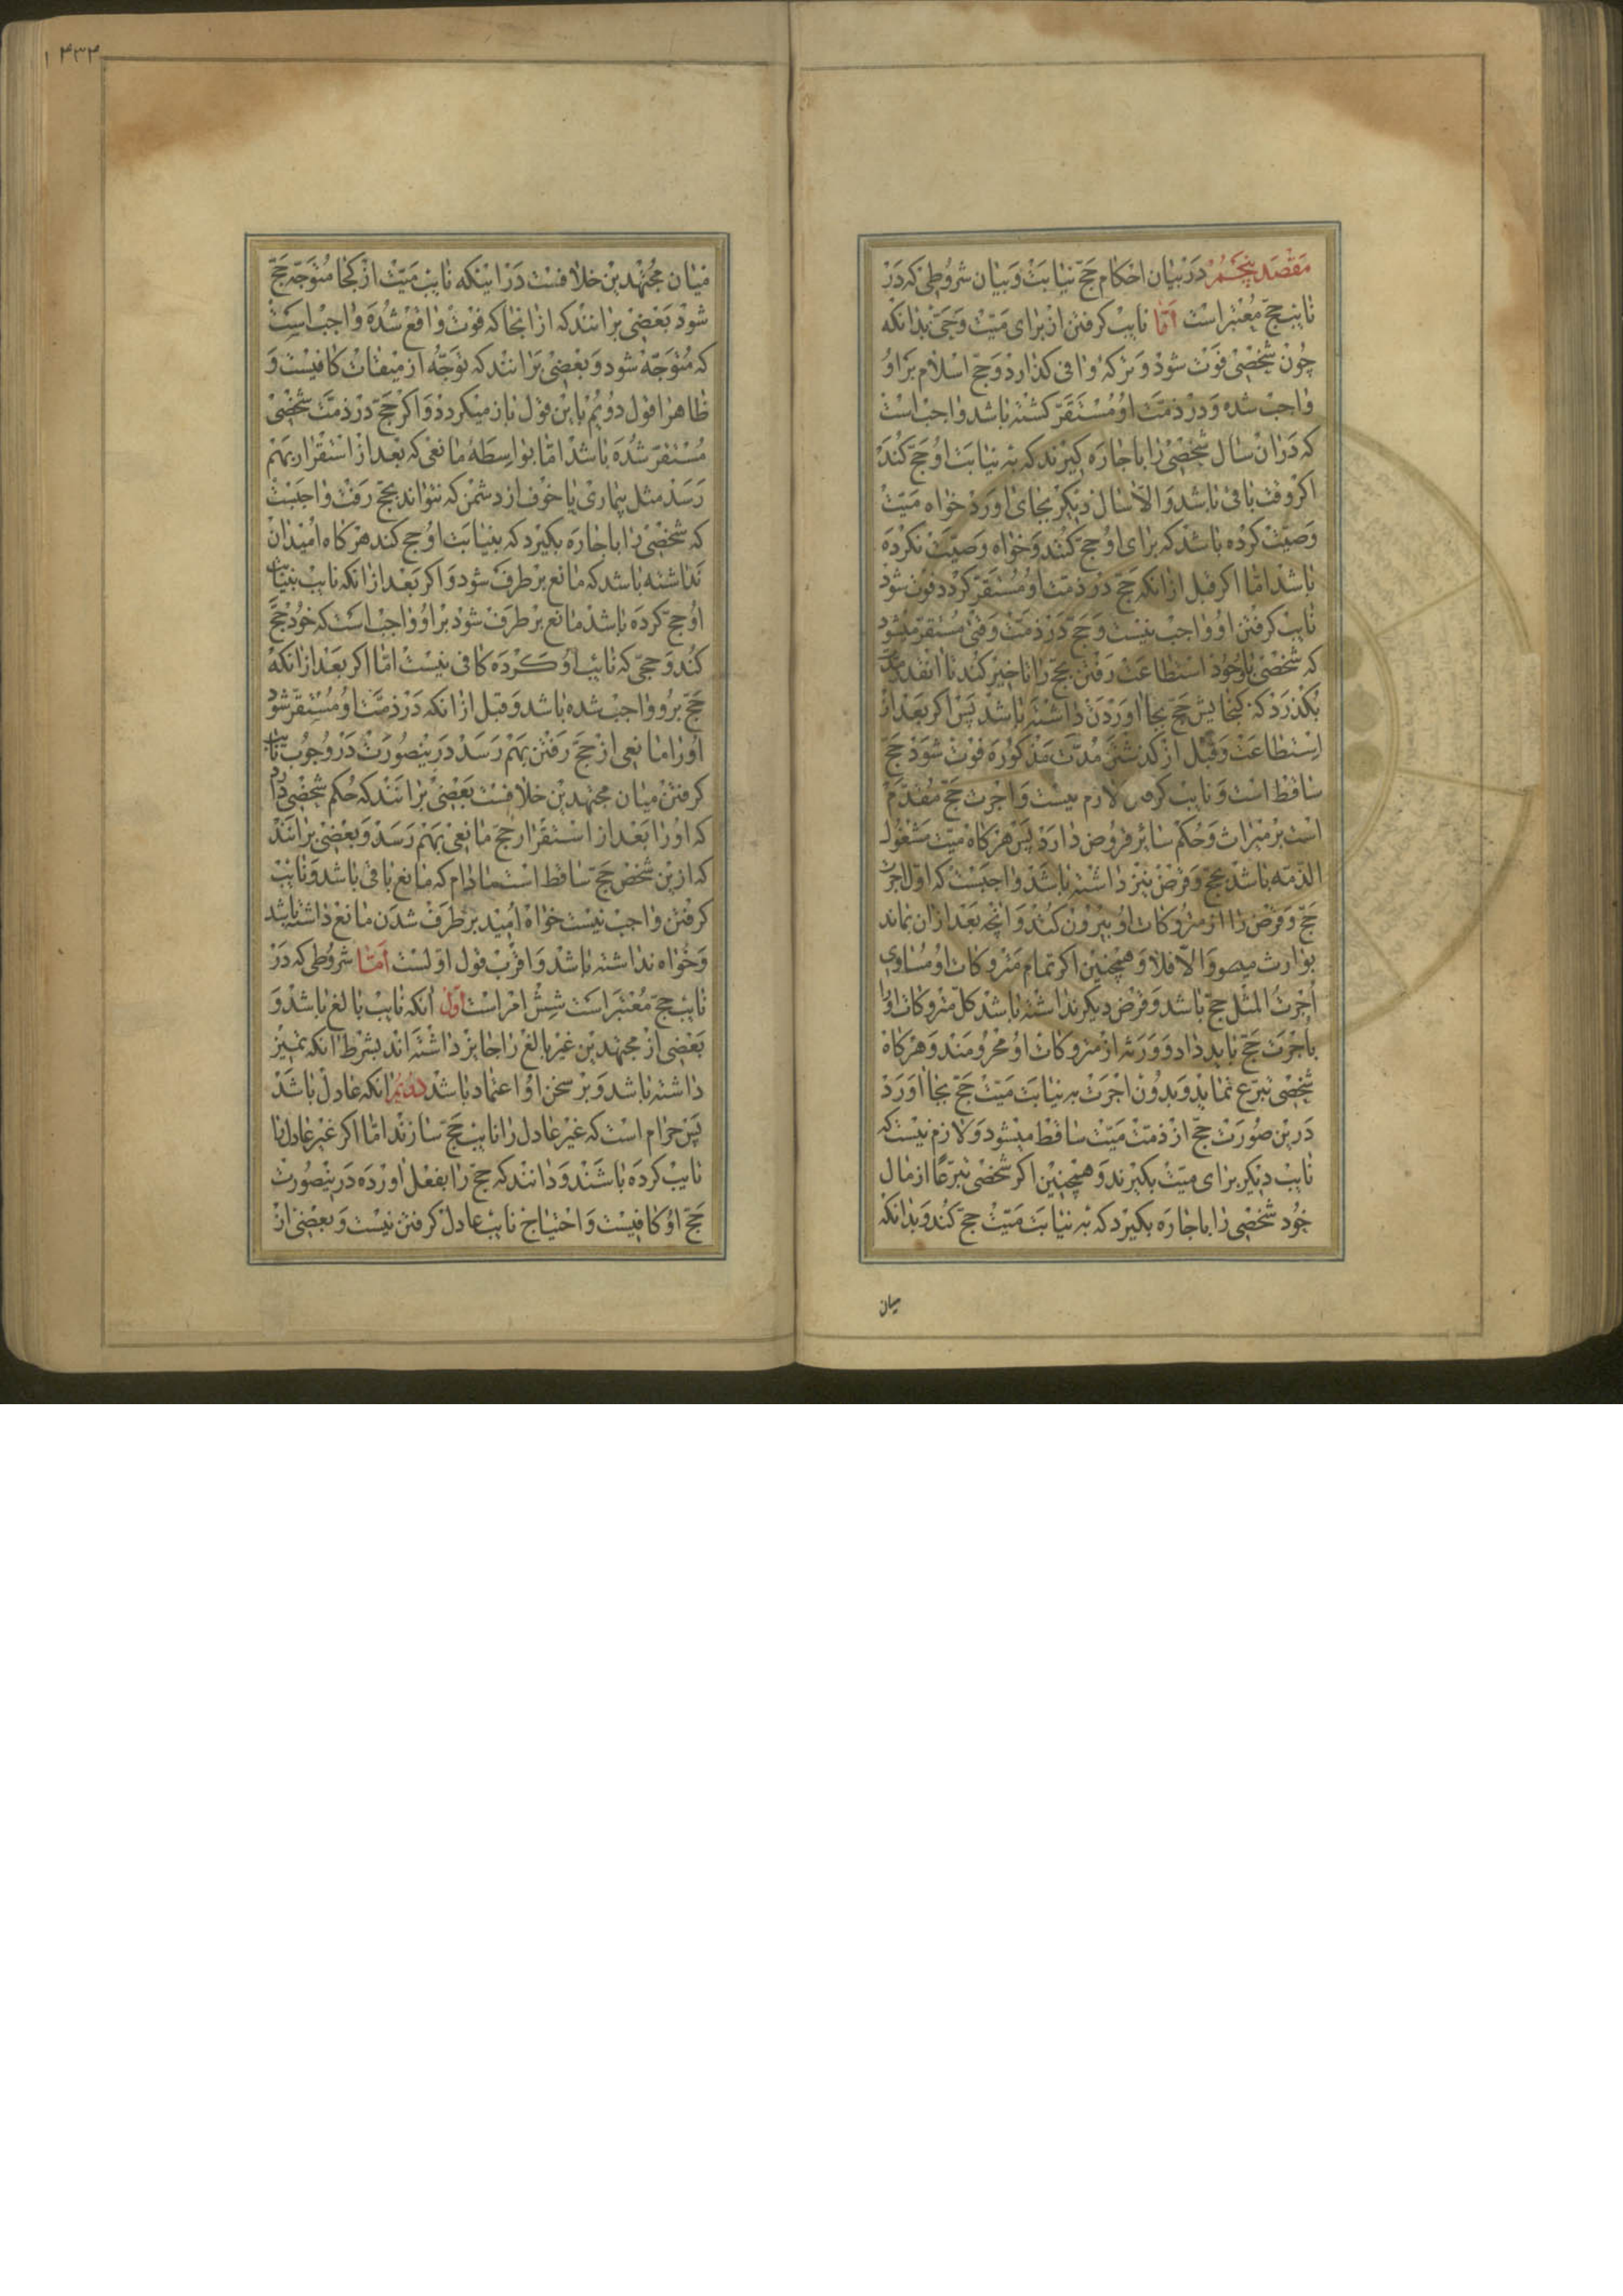 مقصد پنجم در بیان احکام حج نیابت و بیان شروطی که در
نایب حج معتبر است اما نایب کرفتن از برای میت وحی بدانکه
چون شخصی فوت شود و ترکه وافی کذارد و حج اسلام بر او
واجب شده و در ذمت او مستقر کشته باشد واجب است
که در ان سال شخصی را باجاره کیرند که به نیابت او حج کند
اکر وقت باقی باشد و الا سال دیکر بجای اورد خواه میت
وصیت کرده باشد که برای او حج کنند و خواه وصیت نکرده
باشد اما اکر قبل از انکه حج در ذمت او مستقر کردد فوت شود
نایب کرفتن او واجب نیست و حج در ذمت وقتی مستقر میشود
که شخصی باوجود استطاعت رفتن بحج را تاخیر کند تا انقدر مدت
بکذرد که کنجایش حج بجا اوردن داشته باشد پس اکر بعد از
استطاعت و قبل از کذشتن مدت مذکوره فوت شود حج
ساقط است و نایب کرفتن لازم نیست و اجرت حج مقدم
است بر میراث و حکم سائر قروض دارد پس هرکاه میت مشغول
الذمه باشد بحج و قرض نیز داشته باشد واجبست که اول اجرت
حج و قرض را از متروکات او بیرون کنند و انچه بعد از ان بماند
بوارث میصو و الا فلا و همچنین اکر تمام متروکات او مساوی
اجرت المثل حج باشد و قرض دیکر نداشته باشد کل متروکات او را
باجرت حج باید داد و ورثه از متروکات او محرومند و هرکاه
شخصی تبرع نماید و بدون اجرت به نیابت میت حج بجا اورد
درین صورت حج از ذمت میت ساقط میشود و لازم نیست که
نایب دیکر برای میت بکیرند و همچنین اکر شخصی تبرعا از مال
خود شخصی را باجاره بکیرد که به نیابت میت حج کند و بدانکه
میان
۴۳۴
میان مجتهدین خلافست در اینکه نایب میت از کجا متوجه حج
شود بعضی برانند که از انجا که فوت واقع شده واجب است
که متوجه شود و بعضی برانند که توجه از میقات کافیست و
ظاهرا قول دویم باین قول باز میکردد و اکر حج در ذمت شخصی
مستقر شده باشد اما بواسطه مانعی که بعد از استقرار بهم
رسد مثل بیماری یا خوف از دشمن که نتواند بحج رفت واجبست
که شخصی را باجاره بکیرد که بنیابت او حج کند هرکاه امیدان
نداشته باشد که مانع بر طرف شود و اکر بعد از انکه نایب بنیابت
او حج کرده باشد مانع بر طرف شود بر او واجب است که خود حج
کند و حجی که نایب او کرده کافی نیست اما اکر بعد از انکه
حج برو واجب شده باشد و قبل از انکه در ذمت او مستقر شود
او را مانعی از حج رفتن بهم رسد درینصورت در وجوب نایب
کرفتن میان مجتهدین خلافست بعضی برانند که حکم شخصی دارد
که او را بعد از استقرار حج مانعی بهم رسد و بعضی برانند
که ازین شخص حج ساقط است مادام که مانع باقی باشد و نایب
کرفتن واجب نیست خواه امید بر طرف شدن مانع داشته باشد
و خواه نداشته باشد و اقرب قول اولست اما شروطی که در
نایب حج معتبر است شش امر است اول انکه نایب بالغ باشد و
بعضی از مجتهدین غیر بالغ را جایز داشته اند بشرط انکه تمیز
داشته باشد و بر سخن او اعتماد باشد دویم انکه عادل باشد
پس حرام است که غیر عادل را نایب حج سازند اما اکر غیر عادل را
نایب کرده باشند و دانند که حج را بفعل اورده درینصورت
حج او کافیست و احتیاج نایب عادل کرفتن نیست و بعضی از